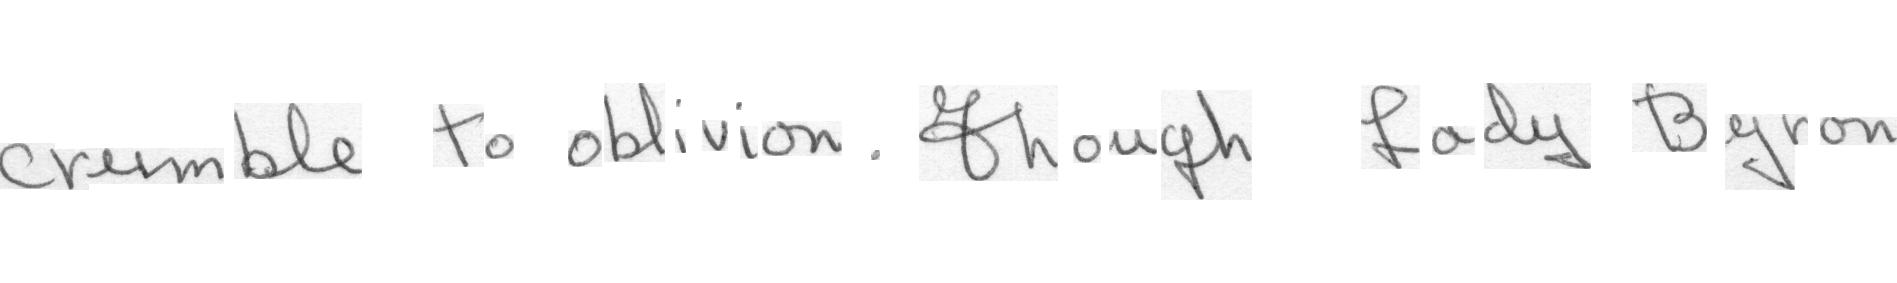 crumble to oblivion. Though Lady Byron